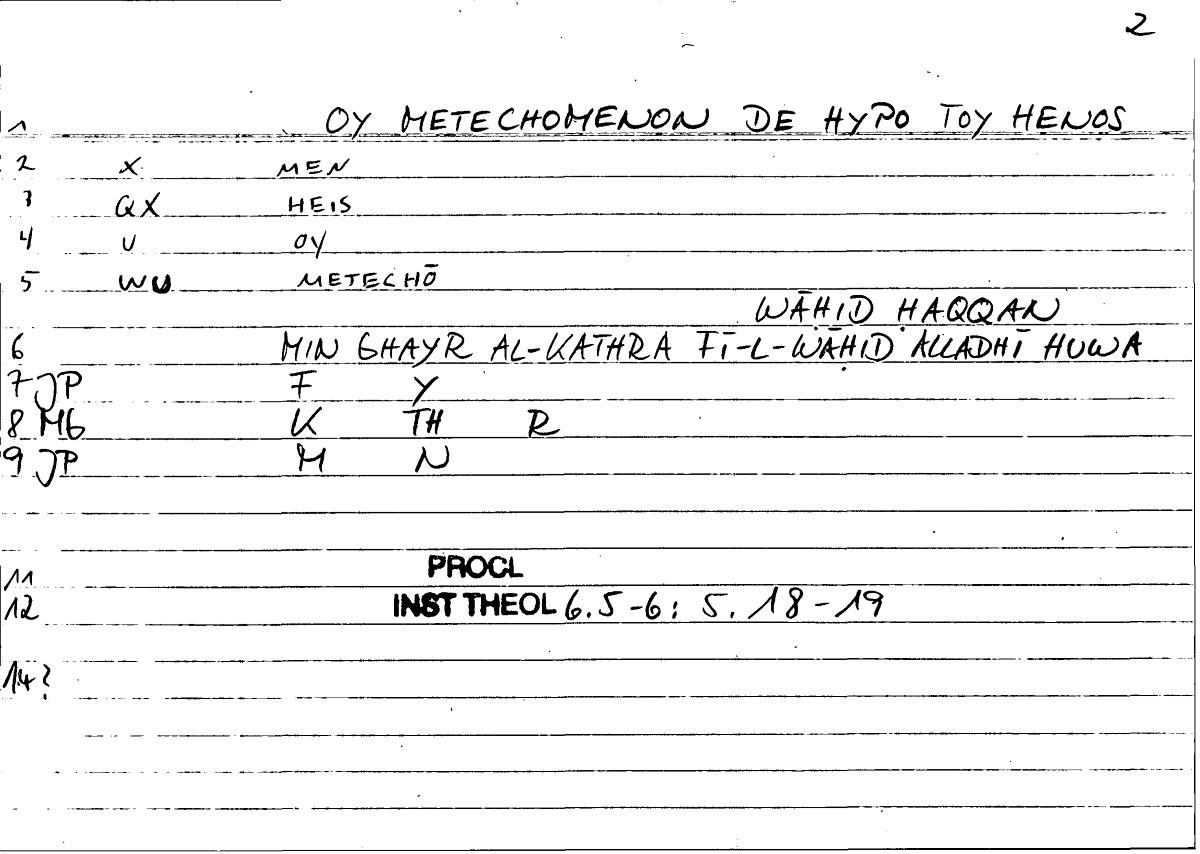 2
1 OY METECHOMENON DE HYPO TOY HENOS
2 X MEN
3 QX HEIS
4 U OY
5 WU METECHŌ
WĀḤID ḤAQQAN
6 MIN GHAYR AL-KATHRA FĪ-L-WĀḤID ALLADHĪ HUWA
7 JP F Y
8 MG K TH R
9 JP M N
11 PROCL
12 INST THEOL 6.5-6: 5.18-19
14?